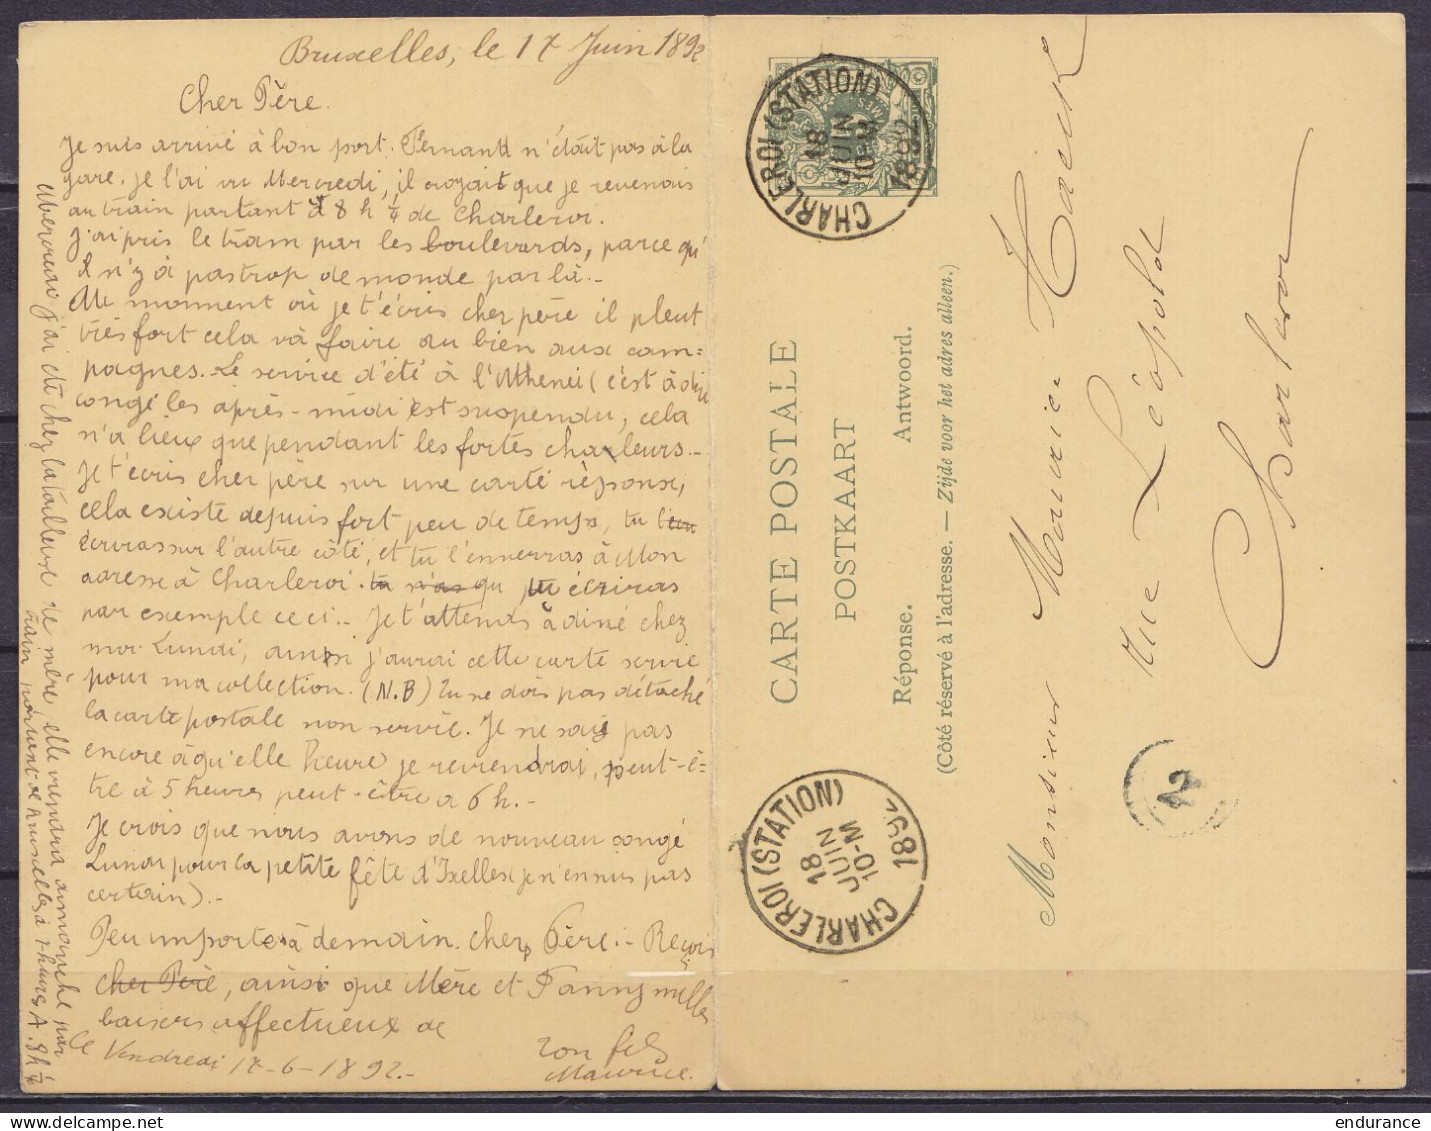 Bruxelles, le 17 Juin 1892
Cher Père.
Je suis arrivé à bon port. Fernand n'était pas à la
gare, je l'ai vu Mercredi, il croyait que je revenais
au train partant à 8 h ¼ de Charleroi.
J'ai pris le tram par les boulevards, parce qu'
il n'y à pas trop de monde par là.-
Au moment où je t'écris cher père il pleut
très fort cela và faire du bien aux cam=
pagnes. Le service d'été à l'Athenéi (c'est à dire
congé les après-midi est suspendu, cela
n'a lieux que pendant les fortes chaleurs.-
Je t'écris cher père sur une carte réponse,
cela existe depuis fort peu de temps, tu l'en
écriras sur l'autre côté, et tu l'enverras à Mon
adresse à Charleroi. tu n'as qu tu écriras
par exemple ceci.- Je t'attends à diné chez
moi Lundi, ainsi j'aurai cette carte servie
pour ma collection. (N.B) Tu ne dois pas détaché
la carte postale non servie. Je ne sais pas
encore à qu'elle heure je reviendrai, peut-ê=
tre à 5 heures peut-être a 6 h.-
Je crois que nous avons de nouveau congé
Lundi pour la petite fête d'Ixelles (je n'en suis pas
certain).-
Peu importe à demain. cher Père.- Reçois
cher Père, ainsi que Mère et Fanny mille
baisers affectueux de
ton fils
Maurice.
Le Vendredi 17-6-1892.-
Mercredi j'ai été chez la tailleuse de mère, elle viendra dimanche par
train partant de Bruxelles à 7 heures A. 8h ¼
CARTE POSTALE
POSTKAART
Réponse. Antwoord.
(Côté réservé à l'adresse. — Zijde voor het adres alleen.)
CHARLEROI (STATION)
18
JUIN
10-M
1892
CHARLEROI (STATION)
18
JUIN
10-M
1892
Monsieur Maurice Haeck
rue Léopold
Charleroi
2
endurance